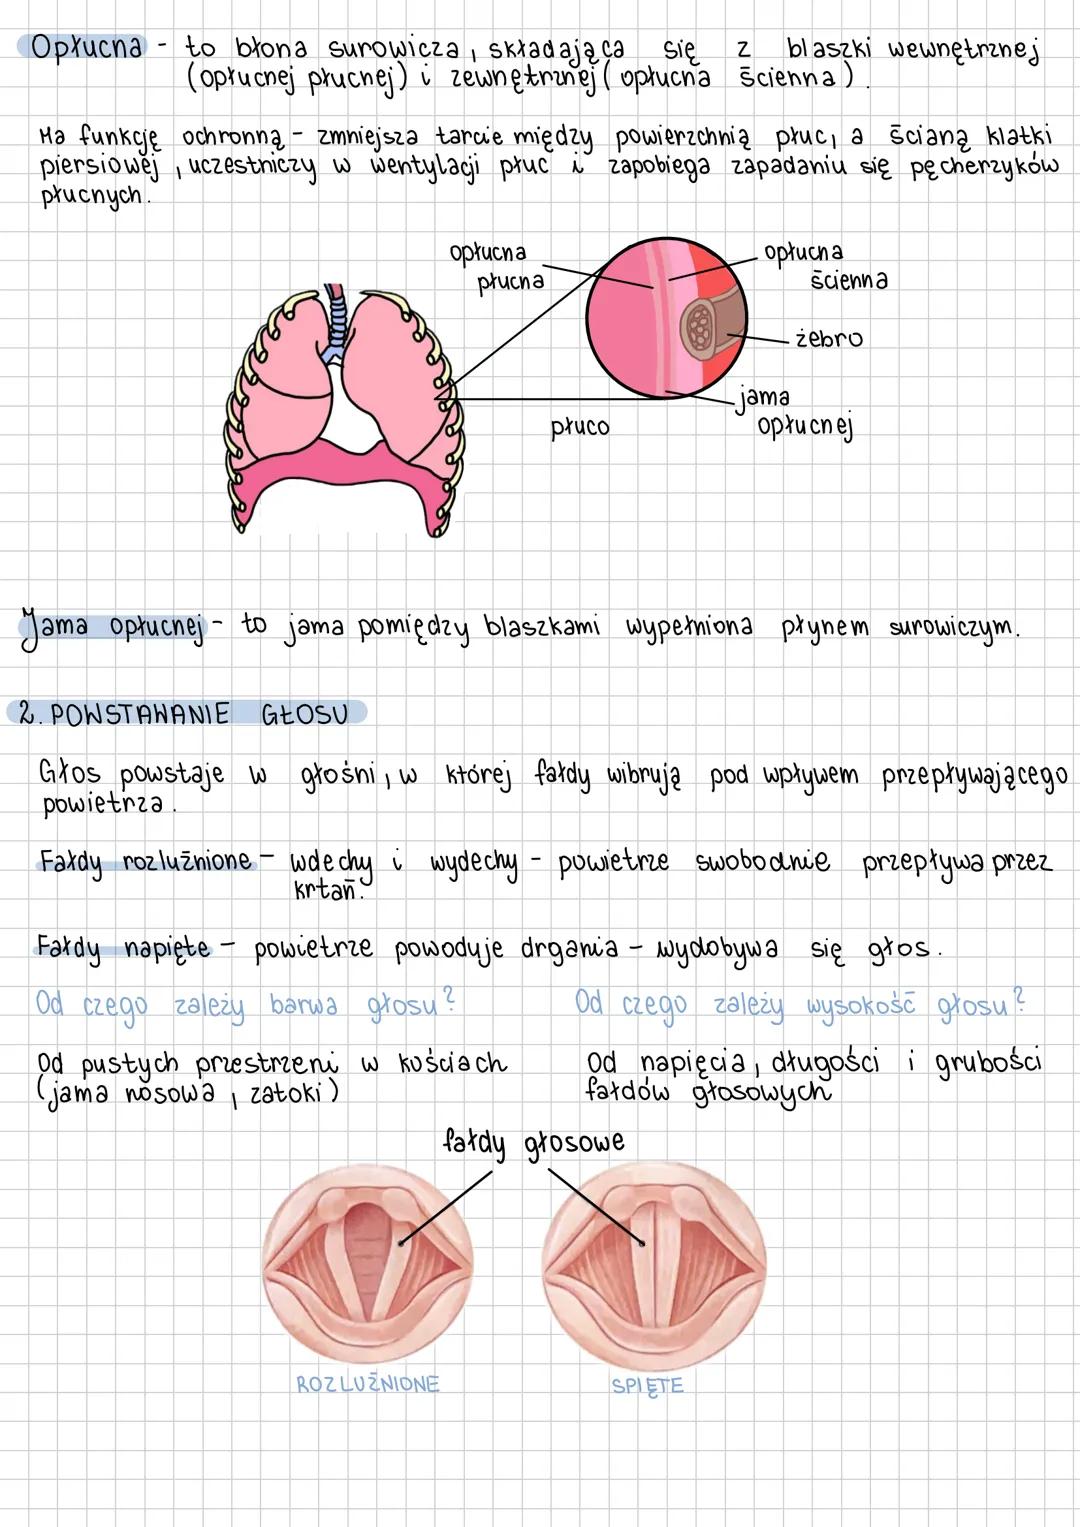 Opłucna - to błona surowicza, składająca się z blaszki wewnętrznej
(opłucnej płucnej) i zewnętrznej (opłucna ścienna).
Ma funkcję ochronną - zmniejsza tarcie między powierzchnią płuc, a ścianą klatki
piersiowej, uczestniczy w wentylacji płuc i zapobiega zapadaniu się pęcherzyków
płucnych.
opłucna
płucna
opłucna
ścienna
żebro
jama
opłucnej
płuco
Jama opłucnej - to jama pomiędzy blaszkami wypełniona płynem surowiczym.
2. POWSTAWANIE GŁOSU
Głos powstaje w głośni, w której fałdy wibrują pod wpływem przepływającego
powietrza.
Fałdy rozluźnione - wdechy i wydechy - powietrze swobodnie przepływa przez
krtań.
Fałdy napięte - powietrze powoduje drgania - wydobywa się głos.
Od czego zależy barwa głosu?
Od pustych przestrzeni w kościach
(jama nosowa, zatoki)
Od czego zależy wysokość głosu?
Od napięcia, długości i grubości
fałdów głosowych
fałdy głosowe
ROZLUŹNIONE
SPIĘTE